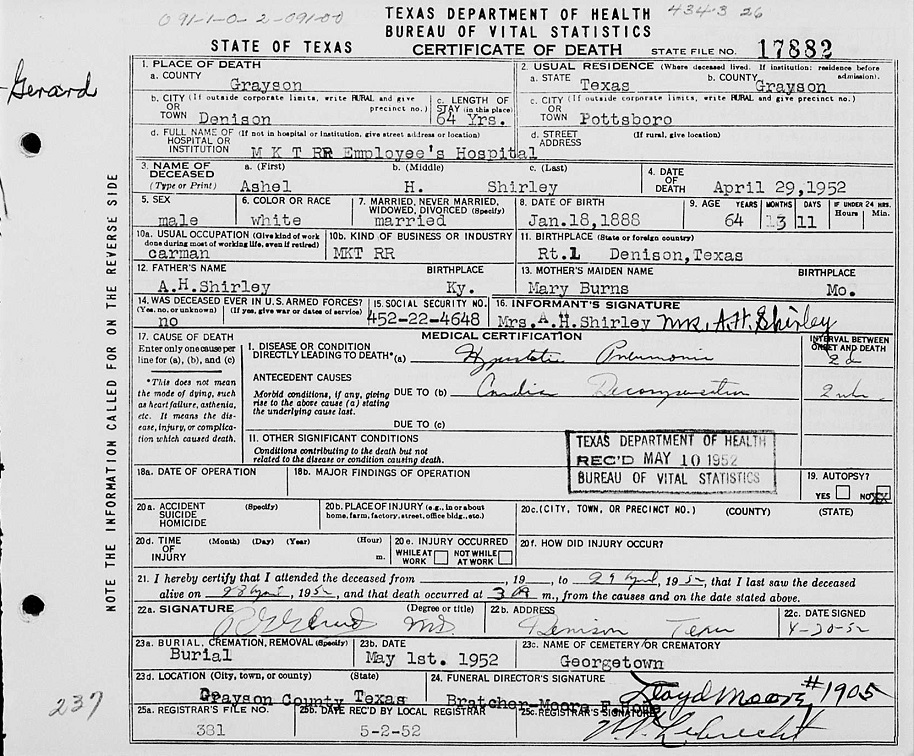 091-1-0-2-091-00
4343 26
TEXAS DEPARTMENT OF HEALTH
BUREAU OF VITAL STATISTICS
STATE OF TEXAS CERTIFICATE OF DEATH STATE FILE NO. 17882
Gerard
1. PLACE OF DEATH
a. COUNTY
Grayson
2. USUAL RESIDENCE (Where deceased lived. If institution: residence before admission).
a. STATE b. COUNTY
Texas Grayson
b. CITY (If outside corporate limits, write RURAL and give precinct no.)
OR
TOWN Denison
c. LENGTH OF STAY (in this place)
64 Yrs.
c. CITY (If outside corporate limits, write RURAL and give precinct no.)
OR
TOWN Pottsboro
d. FULL NAME OF (If not in hospital or institution, give street address or location)
HOSPITAL OR
INSTITUTION M K T RR Employee's Hospital
d. STREET (If rural, give location)
ADDRESS
3. NAME OF DECEASED a. (First) b. (Middle) c. (Last)
(Type or Print) Ashel H. Shirley
4. DATE OF DEATH April 29,1952
5. SEX
male
6. COLOR OR RACE
white
7. MARRIED, NEVER MARRIED, WIDOWED, DIVORCED (Specify)
married
8. DATE OF BIRTH
Jan.18,1888
9. AGE YEARS MONTHS DAYS IF UNDER 24 HRS.
Hours Min.
64 3 11
10a. USUAL OCCUPATION (Give kind of work done during most of working life, even if retired)
carman
10b. KIND OF BUSINESS OR INDUSTRY
MKT RR
11. BIRTHPLACE (State or foreign country)
Rt.1 Denison,Texas
12. FATHER'S NAME BIRTHPLACE
A.H.Shirley Ky.
13. MOTHER'S MAIDEN NAME BIRTHPLACE
Mary Burns Mo.
14. WAS DECEASED EVER IN U.S. ARMED FORCES?
(Yes, no, or unknown) (If yes, give war or dates of service)
no
15. SOCIAL SECURITY NO.
452-22-4648
16. INFORMANT'S SIGNATURE
Mrs.A.H.Shirley Mrs. A.H. Shirley
17. CAUSE OF DEATH
Enter only one cause per line for (a), (b), and (c)
*This does not mean the mode of dying, such as heart failure, asthenia, etc. It means the disease, injury, or complication which caused death.
MEDICAL CERTIFICATION
INTERVAL BETWEEN ONSET AND DEATH
I. DISEASE OR CONDITION
DIRECTLY LEADING TO DEATH*(a) Hypostatic Pneumonia 2 d
ANTECEDENT CAUSES
Morbid conditions, if any, giving rise to the above cause (a) stating the underlying cause last.
DUE TO (b) Cardiac Decompensation 2 wk
DUE TO (c)
II. OTHER SIGNIFICANT CONDITIONS
Conditions contributing to the death but not related to the disease or condition causing death.
TEXAS DEPARTMENT OF HEALTH
REC'D MAY 10 1952
BUREAU OF VITAL STATISTICS
18a. DATE OF OPERATION
18b. MAJOR FINDINGS OF OPERATION
19. AUTOPSY?
YES NO XX
20a. ACCIDENT (Specify)
SUICIDE
HOMICIDE
20b. PLACE OF INJURY (e.g., in or about home, farm, factory, street, office bldg., etc.)
20c. (CITY, TOWN, OR PRECINCT NO.) (COUNTY) (STATE)
20d. TIME OF INJURY (Month) (Day) (Year) (Hour)
m.
20e. INJURY OCCURRED
WHILE AT WORK NOT WHILE AT WORK
20f. HOW DID INJURY OCCUR?
21. I hereby certify that I attended the deceased from , 19 , to 29 April, 1952, that I last saw the deceased
alive on 28 April, 1952, and that death occurred at 3 m., from the causes and on the date stated above.
22a. SIGNATURE (Degree or title)
MD
22b. ADDRESS
Denison Texas
22c. DATE SIGNED
4-30-52
23a. BURIAL, CREMATION, REMOVAL (Specify)
Burial
23b. DATE
May 1st. 1952
23c. NAME OF CEMETERY OR CREMATORY
Georgetown
23d. LOCATION (City, town, or county) (State)
Grayson County Texas
24. FUNERAL DIRECTOR'S SIGNATURE
Bratcher-Moore F.Home Lloyd Moore #1905
25a. REGISTRAR'S FILE NO.
381
25b. DATE REC'D BY LOCAL REGISTRAR
5-2-52
25c. REGISTRAR'S SIGNATURE
237
NOTE THE INFORMATION CALLED FOR ON THE REVERSE SIDE